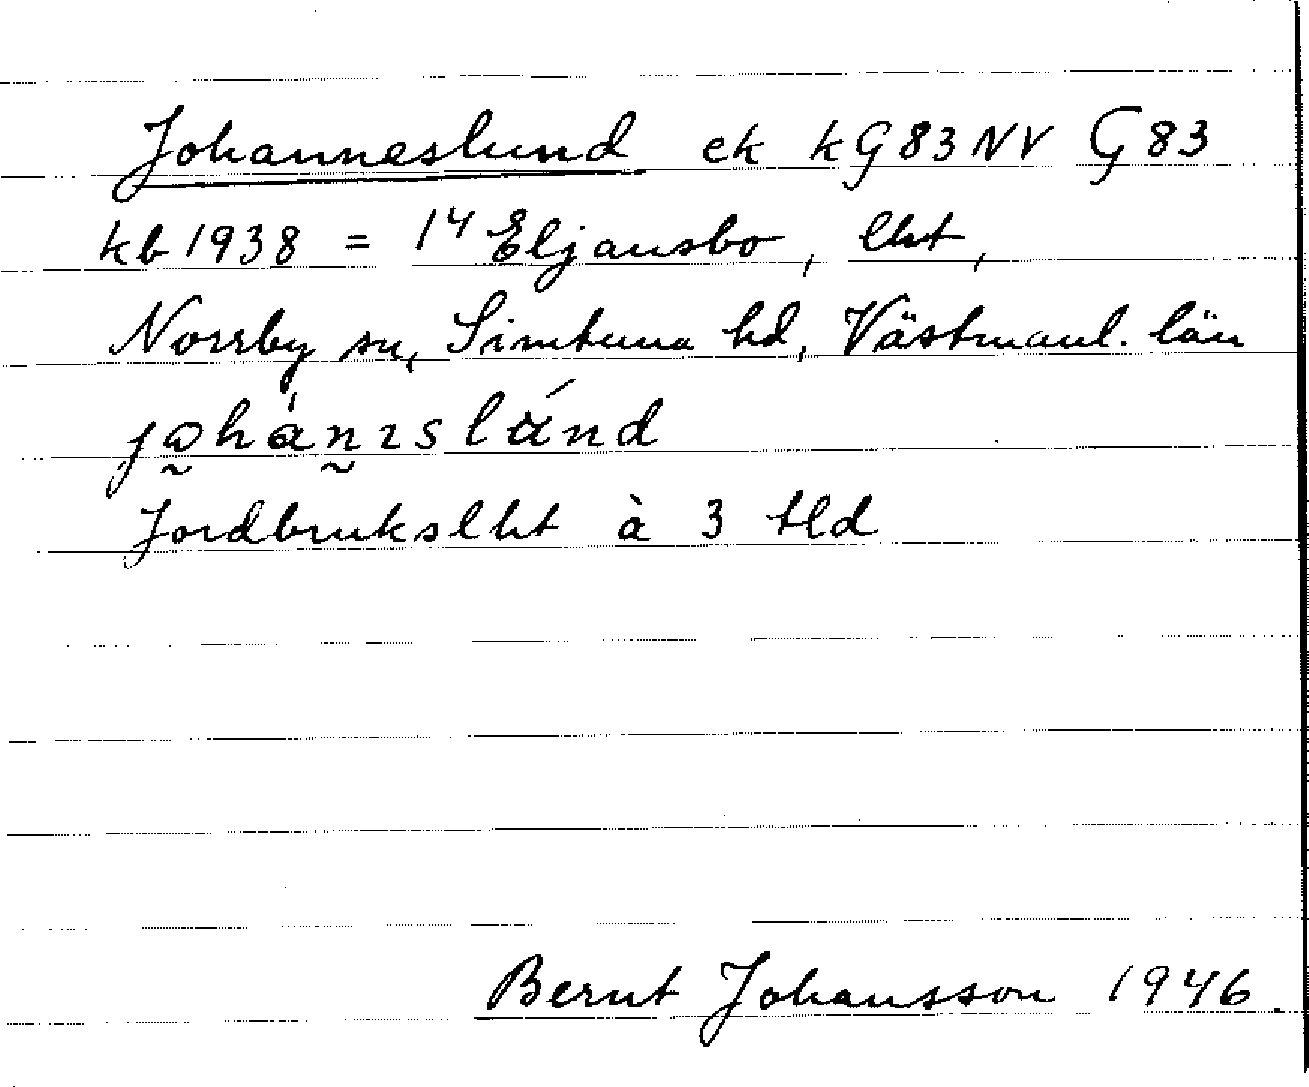 Johanneslund ek kG83NV G83
kb 1938 = 14 Eljansbo, lht,
Norrby sn, Simtuna hd, Västmanl. län
johànɪslánd
Jordbrukslht à 3 tld
Bernt Johansson 1946.